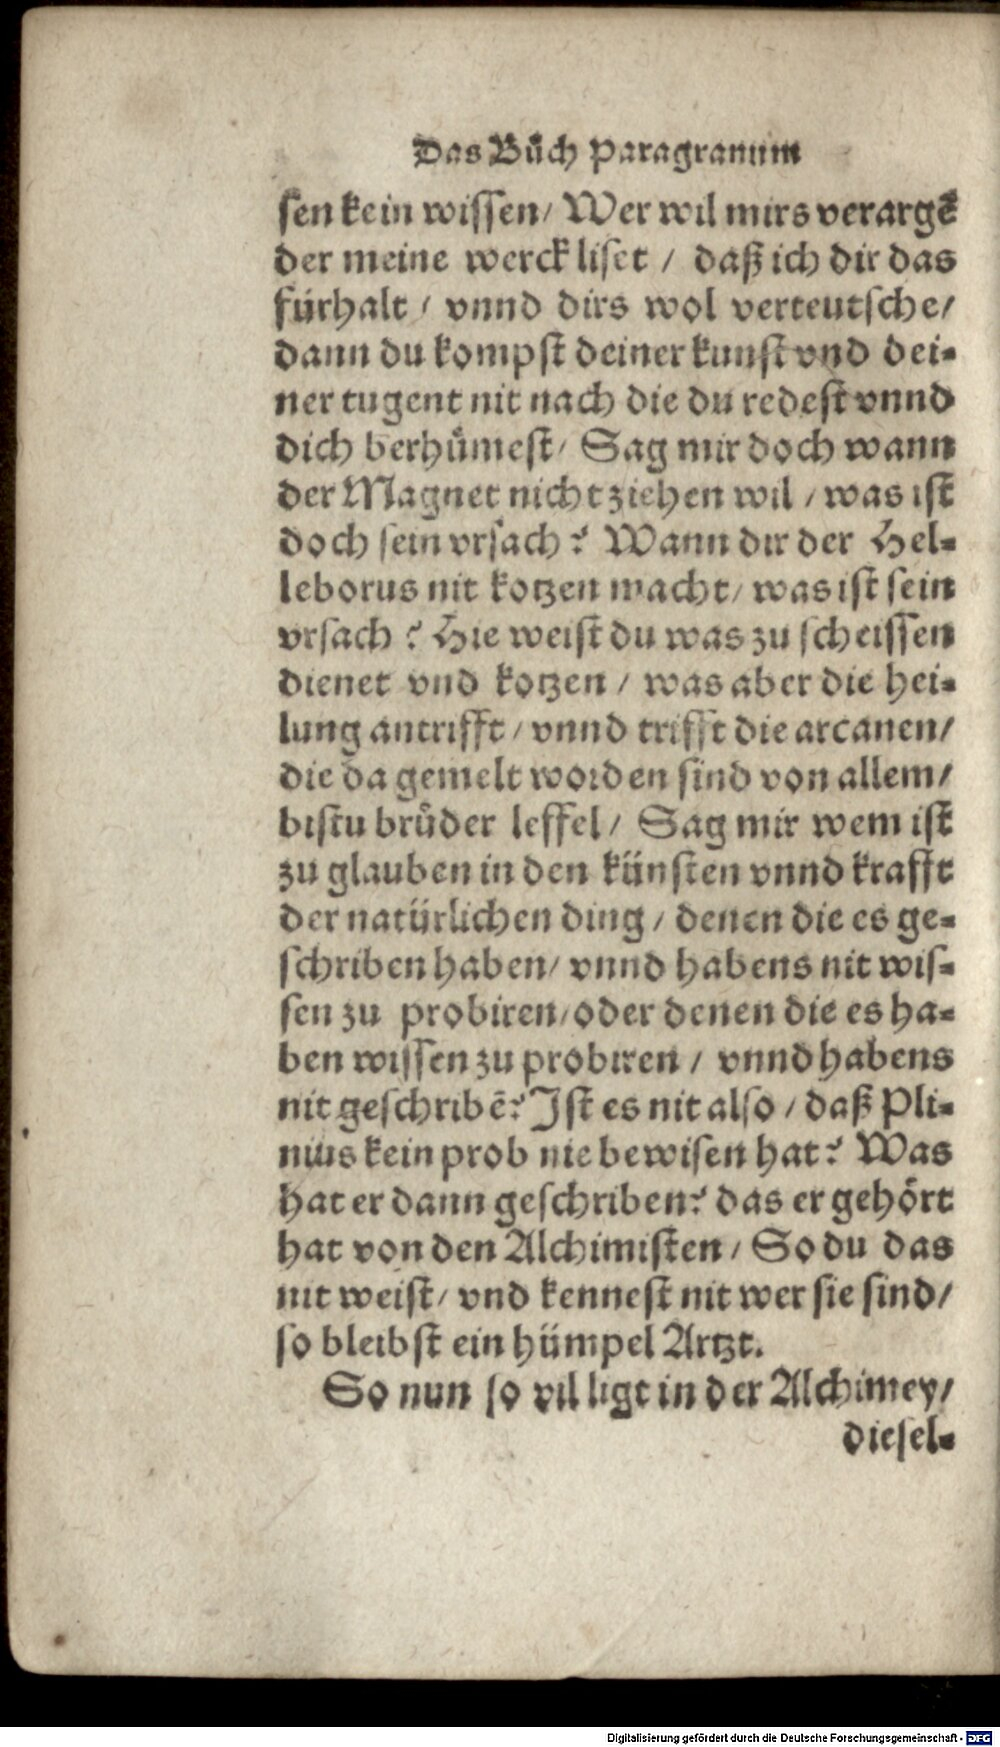 Das Bůch Paragranum
sen kein wissen/ Wer wil mirs verargē
der meine werck liset / daß ich dir das
fürhalt / vnnd dirs wol verteutsche/
dann du kompst deiner kunst vnd dei-
ner tugent nit nach die du redest vnnd
dich berhůmest/ Sag mir doch wann
der Magnet nicht ziehen wil / was ist
doch sein vrsach? Wann dir der Hel-
leborus nit kotzen macht/ was ist sein
vrsach? Hie weist du was zu scheissen
dienet vnd kotzen / was aber die hei-
lung antrifft / vnnd trifft die arcanen/
die da gemelt worden sind von allem/
bistu brůder leffel / Sag mir wem ist
zu glauben in den künsten vnnd krafft
der natürlichen ding / denen die es ge-
schriben haben/ vnnd habens nit wis-
sen zu probiren/ oder denen die es ha-
ben wissen zu probiren / vnnd habens
nit geschribē? Ist es nit also / daß Pli-
nius kein prob nie bewisen hat? Was
hat er dann geschriben? das er gehört
hat von den Alchimisten / So du das
nit weist/ vnd kennest nit wer sie sind/
so bleibst ein hümpel Artzt.
So nun so vil ligt in der Alchimey/
diesel-
Digitalisierung gefördert durch die Deutsche Forschungsgemeinschaft - DFG